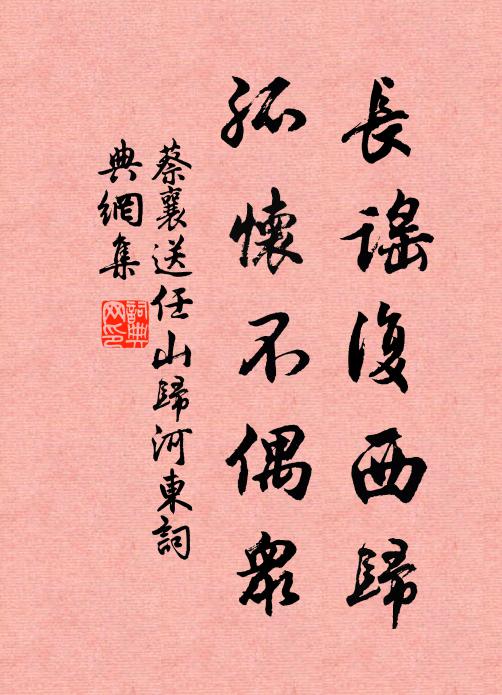 長謡復西歸
孤懷不偶衆
蔡襄送任山歸河東詞
典網集
詞典
网印